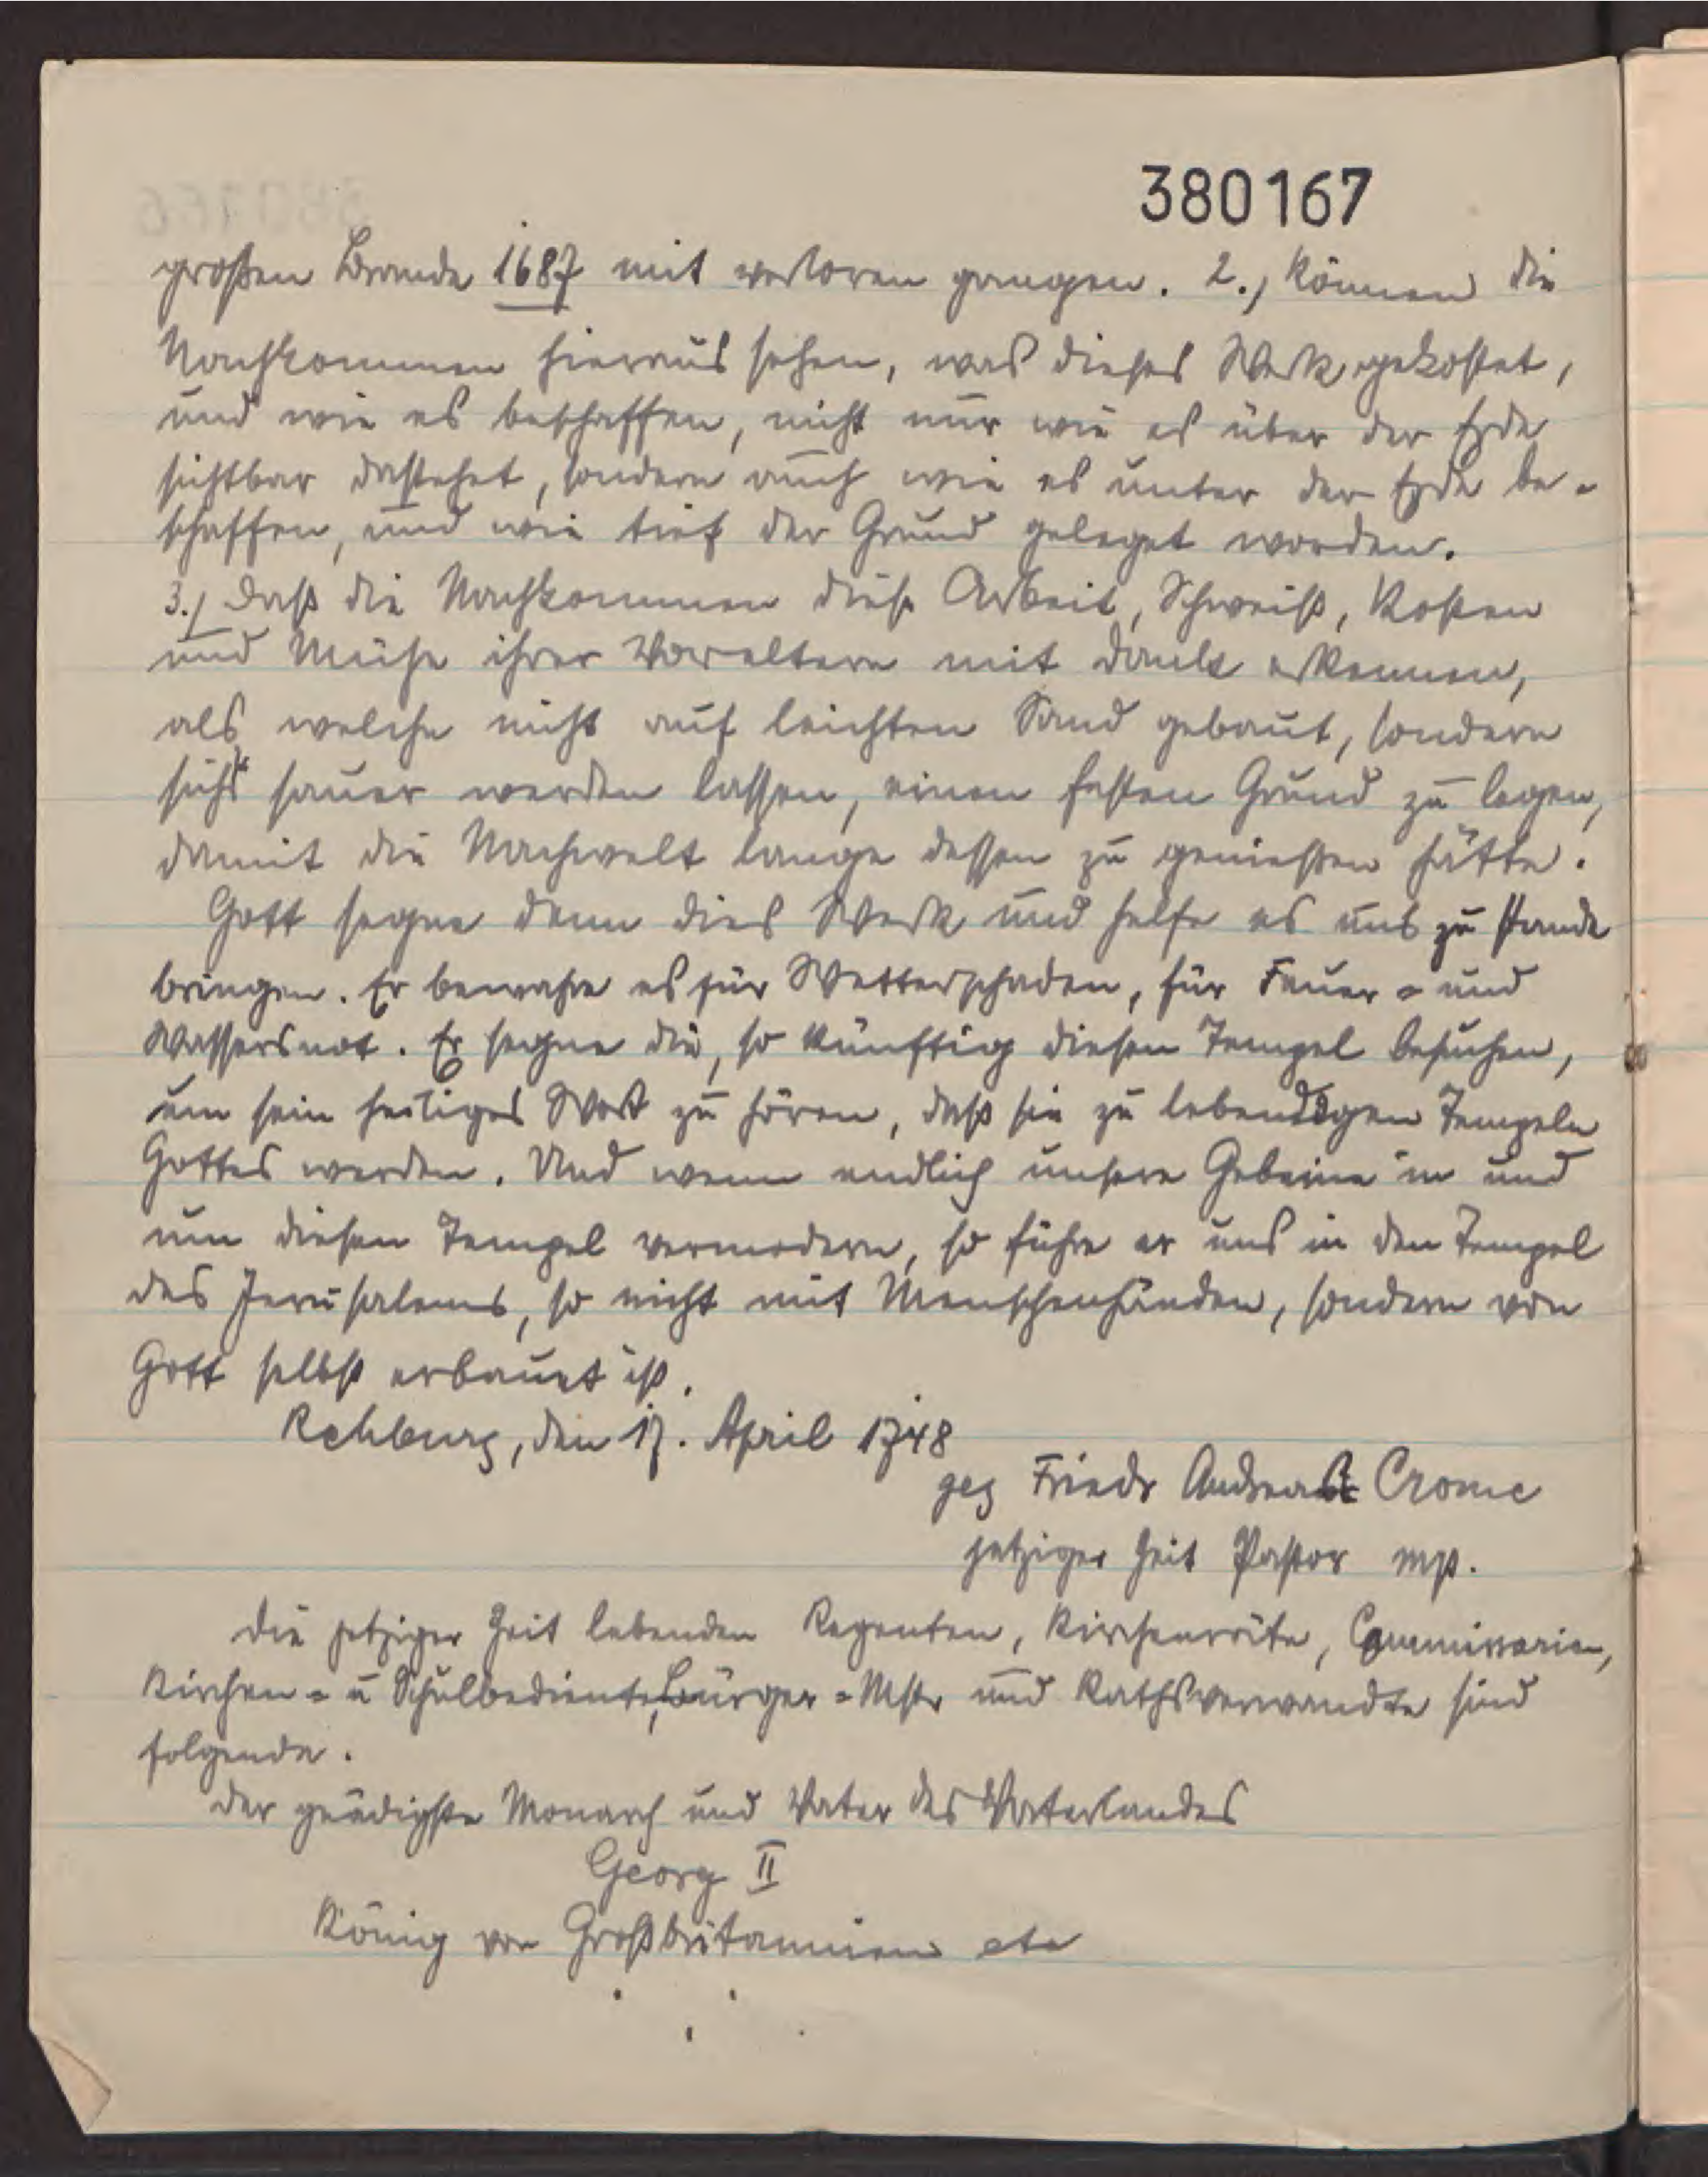 380167
großen Brande 1687 mit verloren gangen. 2.) können die
Nachkommen hieraus sehen, was dieses Werk gekostet,
und wie es beschaffen, nicht nur wie es über der Erde
sichtbar dastehet, sondern auch wie es unter der Erde be-
schaffen, und wie tief der Grund geleget worden.
3.) Daß die Nachkommen diese Arbeit, Schweiß, Kosten
und Mühe ihrer Voreltern mit Dank erkennen,
als welche nicht auf leichten Sand gebaut, sondern
sichs sauer werden lassen, einen festen Grund zu legen,
damit die Nachwelt lange dessen zu genießen hätte.
Gott segne denn dies Werk und helfe es uns zu stande
bringen. Er bewahre es für Wetterschaden, für Feuer- und
Wassersnot. Er segne die, so künftig diesen Tempel besuchen,
um sein heiliges Wort zu hören, daß sie zu lebendigen Tempeln
Gottes werden. Und wenn endlich unsere Gebeine in und
um diesen Tempel vermodern, so führe er uns in den Tempel
des Jerusalems, so nicht mit Menschenhänden, sondern von
Gott selbst erbauet ist.
Rehburg, den 17. April 1748
gez Friedr Andreas Crome
jetziger Zeit Pastor mp.
Die jetziger Zeit lebenden Regenten, Kirchenräte, Commissarien,
Kirchen- u Schulbediente, Bürger-Mstr und Rathsverwandte sind
folgende.
Der gnädigste Monarch und Vater des Vaterlandes
Georg II
König von Großbritannien etc